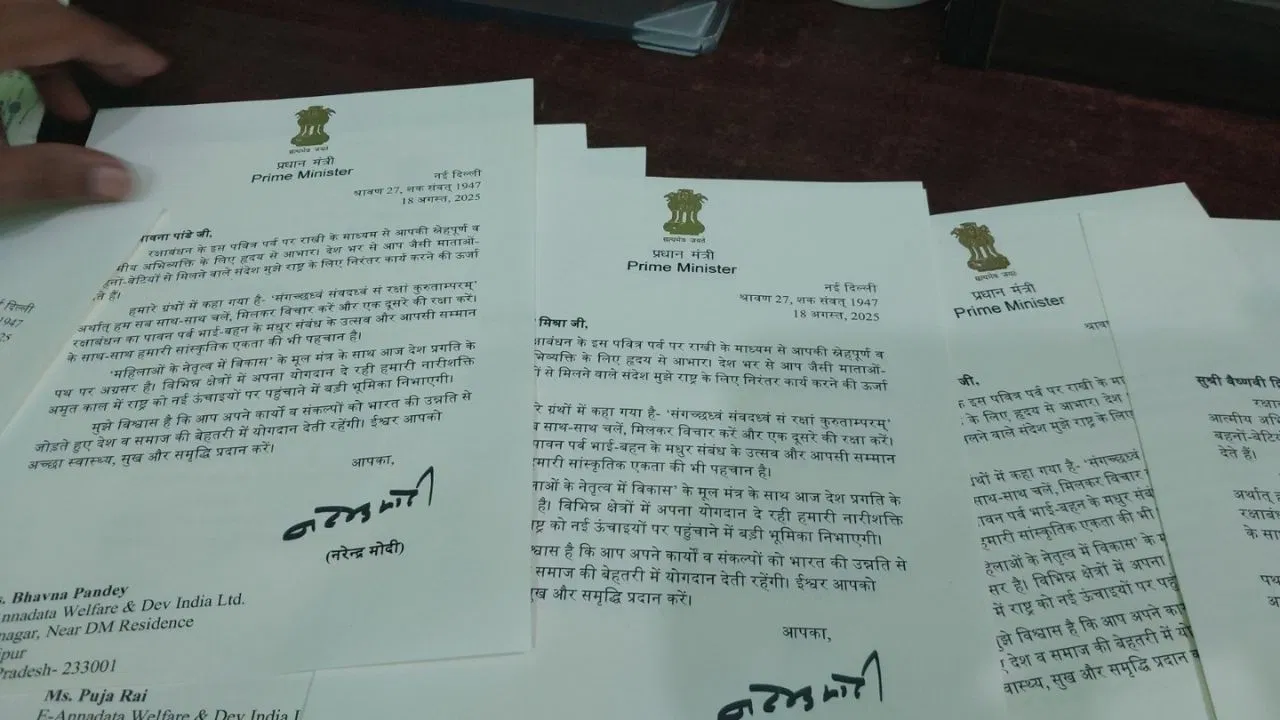 सत्यमेव जयते
प्रधान मंत्री
Prime Minister
नई दिल्ली
श्रावण 27, शक संवत् 1947
18 अगस्त, 2025
पांडे जी,
रक्षाबंधन के इस पवित्र पर्व पर राखी के माध्यम से आपकी स्नेहपूर्ण व
अभिव्यक्ति के लिए हृदय से आभार। देश भर से आप जैसी माताओं-
से मिलने वाले संदेश मुझे राष्ट्र के लिए निरंतर कार्य करने की ऊर्जा
हैं।
हमारे ग्रंथों में कहा गया है- ‘संगच्छध्वं संवदध्वं सं रक्षां कुरुताम्परम्’
अर्थात् हम सब साथ-साथ चलें, मिलकर विचार करें और एक दूसरे की रक्षा करें।
रक्षाबंधन का पावन पर्व भाई-बहन के मधुर संबंध के उत्सव और आपसी सम्मान
के साथ-साथ हमारी सांस्कृतिक एकता की भी पहचान है।
‘महिलाओं के नेतृत्व में विकास’ के मूल मंत्र के साथ आज देश प्रगति के
पथ पर अग्रसर है। विभिन्न क्षेत्रों में अपना योगदान दे रही हमारी नारीशक्ति
अमृत काल में राष्ट्र को नई ऊंचाइयों पर पहुंचाने में बड़ी भूमिका निभाएगी।
मुझे विश्वास है कि आप अपने कार्यों व संकल्पों को भारत की उन्नति से
जोड़ते हुए देश व समाज की बेहतरी में योगदान देती रहेंगी। ईश्वर आपको
अच्छा स्वास्थ्य, सुख और समृद्धि प्रदान करें।
आपका,
(नरेन्द्र मोदी)
Bhavna Pandey
Annadata Welfare & Dev India Ltd.
Near DM Residence
Pradesh- 233001
Ms. Puja Rai
E-Annadata Welfare & Dev India
सत्यमेव जयते
प्रधान मंत्री
Prime Minister
नई दिल्ली
श्रावण 27, शक संवत् 1947
18 अगस्त, 2025
मिश्रा जी,
के इस पवित्र पर्व पर राखी के माध्यम से आपकी स्नेहपूर्ण व
के लिए हृदय से आभार। देश भर से आप जैसी माताओं-
से मिलने वाले संदेश मुझे राष्ट्र के लिए निरंतर कार्य करने की ऊर्जा
ग्रंथों में कहा गया है- ‘संगच्छध्वं संवदध्वं सं रक्षां कुरुताम्परम्’
साथ-साथ चलें, मिलकर विचार करें और एक दूसरे की रक्षा करें।
पावन पर्व भाई-बहन के मधुर संबंध के उत्सव और आपसी सम्मान
हमारी सांस्कृतिक एकता की भी पहचान है।
के नेतृत्व में विकास’ के मूल मंत्र के साथ आज देश प्रगति के
है। विभिन्न क्षेत्रों में अपना योगदान दे रही हमारी नारीशक्ति
को नई ऊंचाइयों पर पहुंचाने में बड़ी भूमिका निभाएगी।
है कि आप अपने कार्यों व संकल्पों को भारत की उन्नति से
समाज की बेहतरी में योगदान देती रहेंगी। ईश्वर आपको
और समृद्धि प्रदान करें।
आपका,
सत्यमेव जयते
प्रधान मंत्री
Prime Minister
जी,
इस पवित्र पर्व पर राखी के
के लिए हृदय से आभार। देश
मिलने वाले संदेश मुझे राष्ट्र के लिए
में कहा गया है- ‘संगच्छध्वं
साथ-साथ चलें, मिलकर विचार
पावन पर्व भाई-बहन के मधुर
हमारी सांस्कृतिक एकता की भी
के नेतृत्व में विकास’ के
है। विभिन्न क्षेत्रों में अपना
में राष्ट्र को नई ऊंचाइयों पर
मुझे विश्वास है कि आप अपने
देश व समाज की बेहतरी में
स्वास्थ्य, सुख और समृद्धि प्रदान
सुश्री वैष्णवी
आत्मीय
देते हैं।
अर्थात्
के